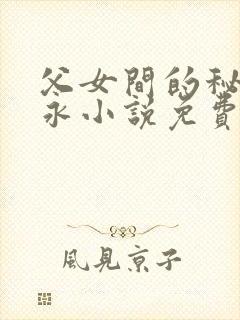 父女間的秘
永小說免費
風見京子